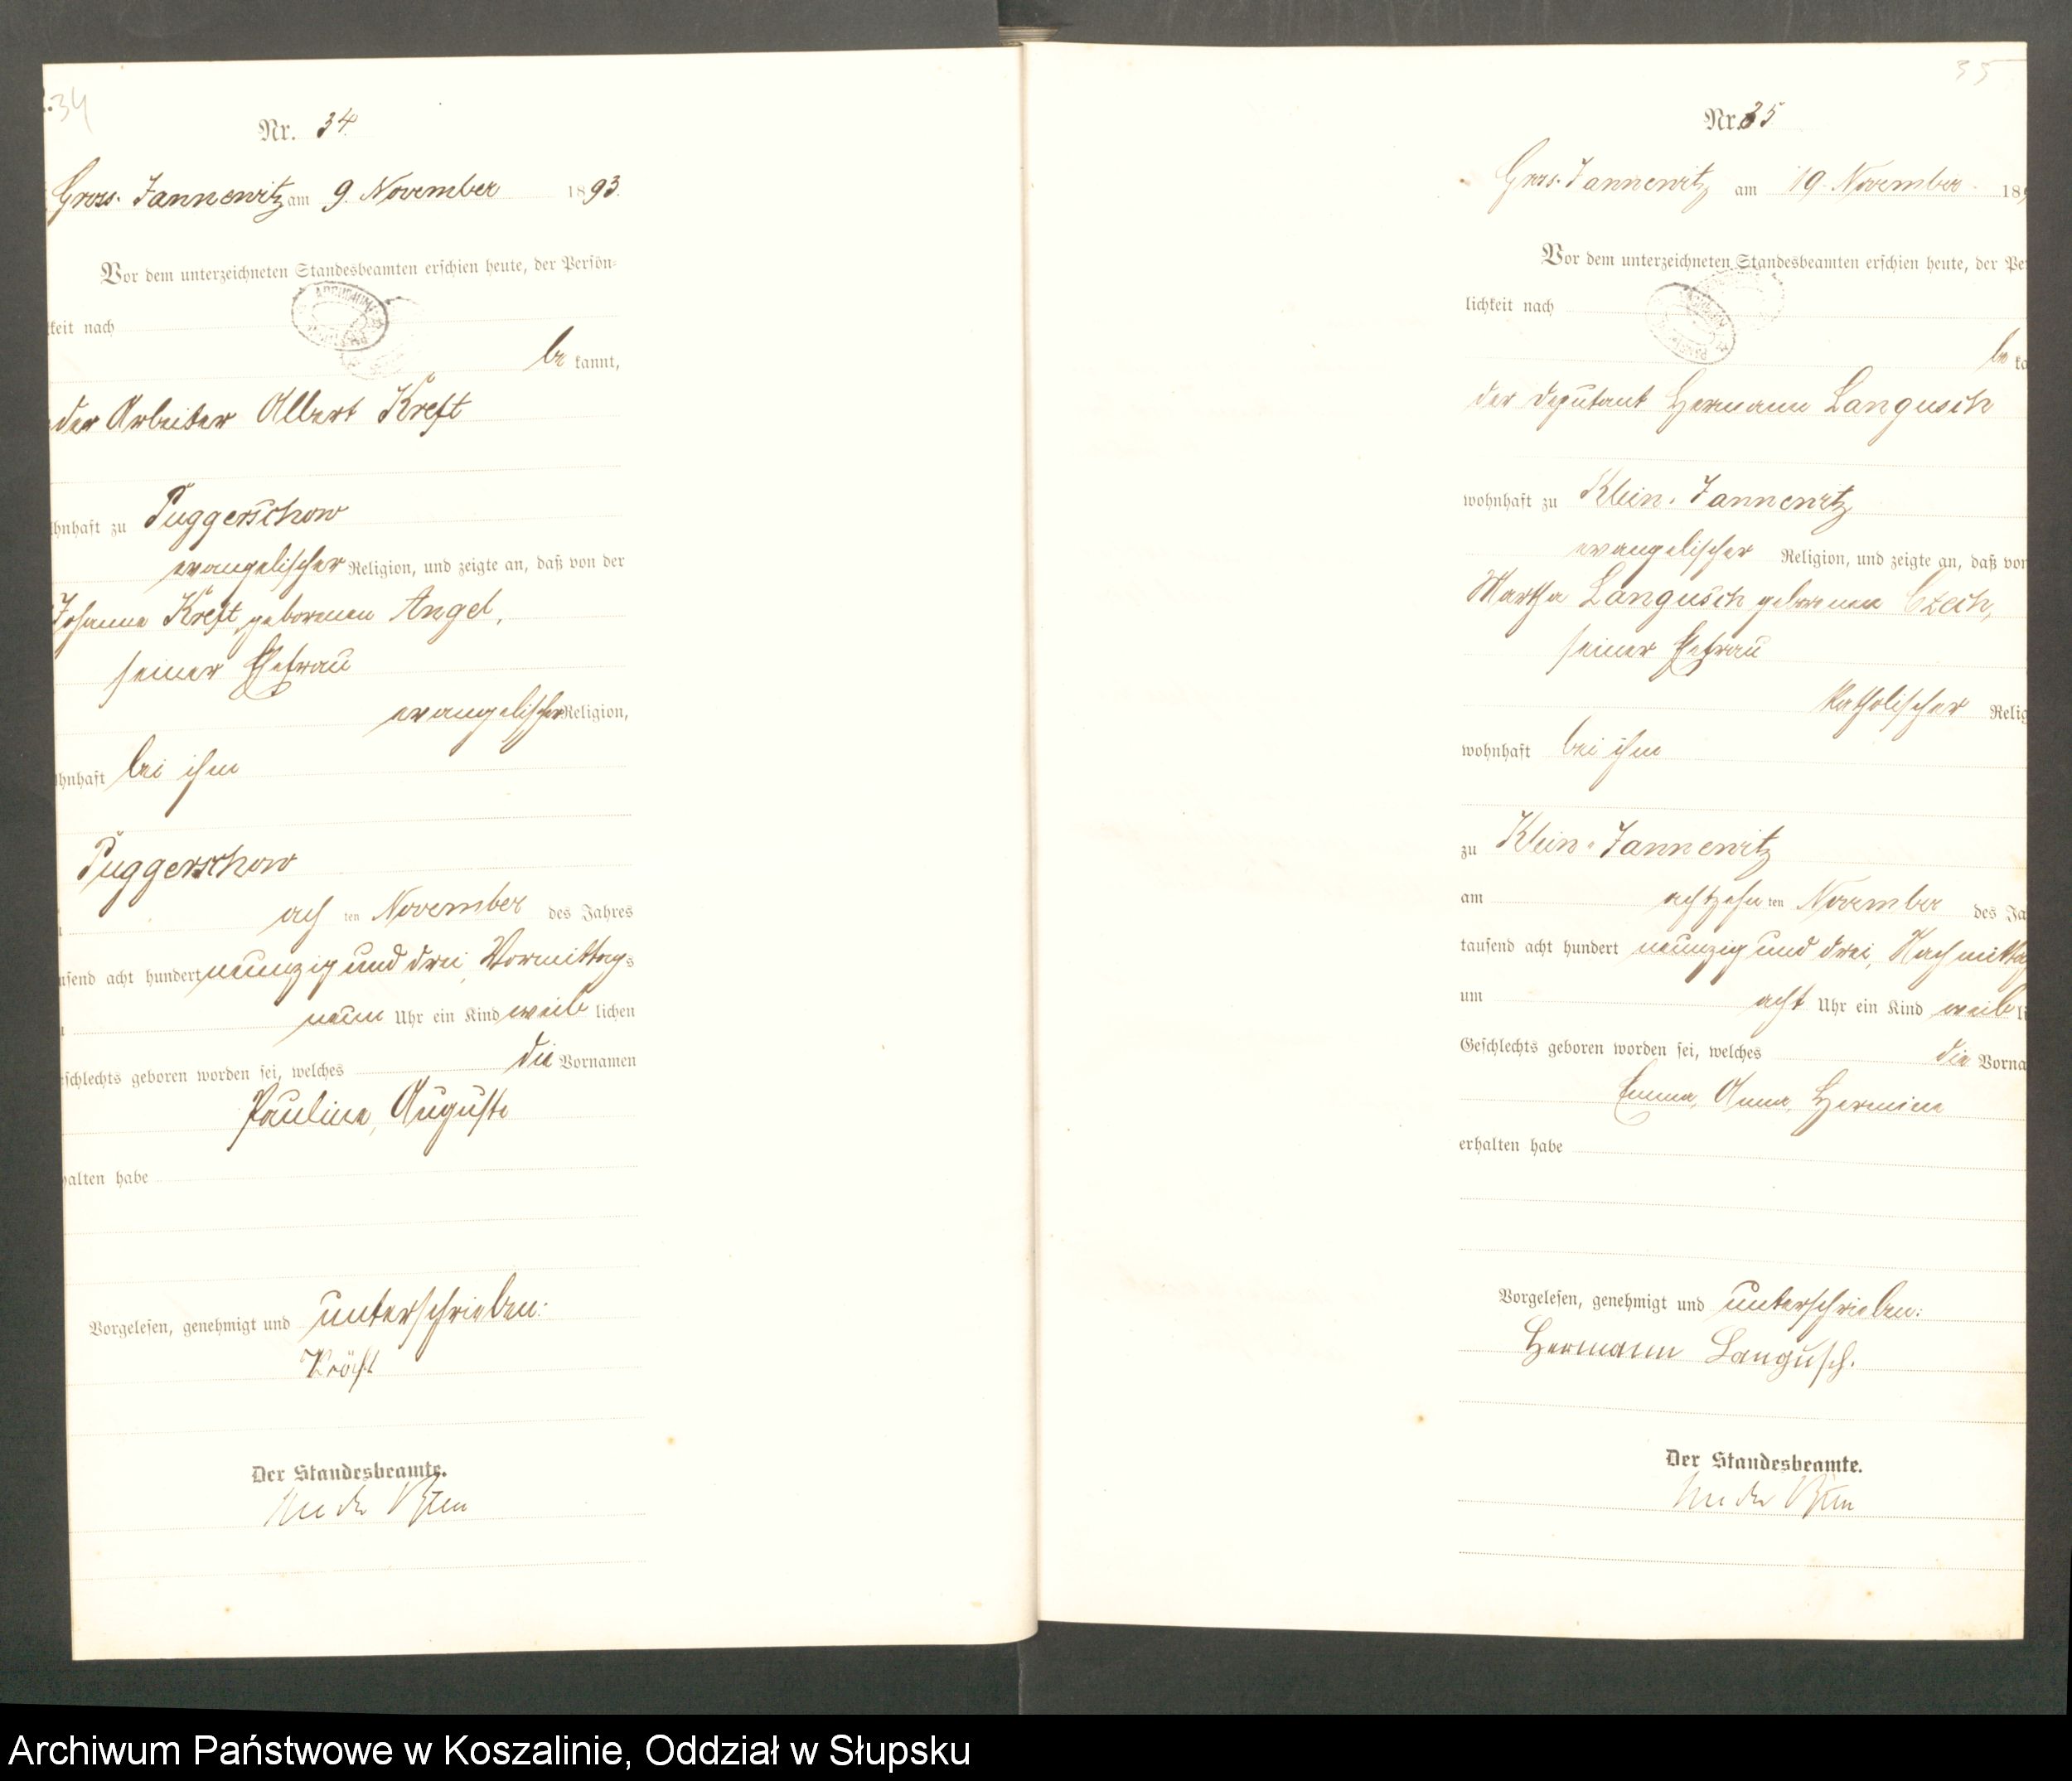 34
Nr. 34.
Gross. Jannewitz am 9. November 1893.
Vor dem unterzeichneten Standesbeamten erschien heute, der Persön-
keit nach
be kannt,
der Arbeiter Albert Kreft
hnhaft zu Puggerschow
evangelischer Religion, und zeigte an, daß von der
Johanne Kreft, geborenen Angel,
seiner Ehefrau
evangelischer Religion,
hnhaft bei ihm
Puggerschow
ach ten November des Jahres
usend acht hundert neunzig und drei, Vormittags
neun Uhr ein Kind weib lichen
schlechts geboren worden sei, welches die Vornamen
Pauline, Auguste
halten habe
Vorgelesen, genehmigt und unterschrieben:
Kräft
Der Standesbeamte.
35
Nr. 35
Gross. Jannewitz am 19. November. 189
Vor dem unterzeichneten Standesbeamten erschien heute, der Pe
lichkeit nach
be ka
der Deputant Hermann Langusch
wohnhaft zu Klein. Jannewitz
evangelischer Religion, und zeigte an, daß von
Martha Langusch geborenen Czech,
seiner Ehefrau
katholischer Relig
wohnhaft bei ihm
zu Klein-Jannewitz
am achtzehn ten November des Ja
tausend acht hundert neunzig und drei, Nachmittag
um acht Uhr ein Kind weib li
Geschlechts geboren worden sei, welches die Vorna
Emma, Anna, Hermine
erhalten habe
Vorgelesen, genehmigt und unterschrieben:
Hermann Langusch.
Der Standesbeamte.
Archiwum Państwowe w Koszalinie, Oddział w Słupsku